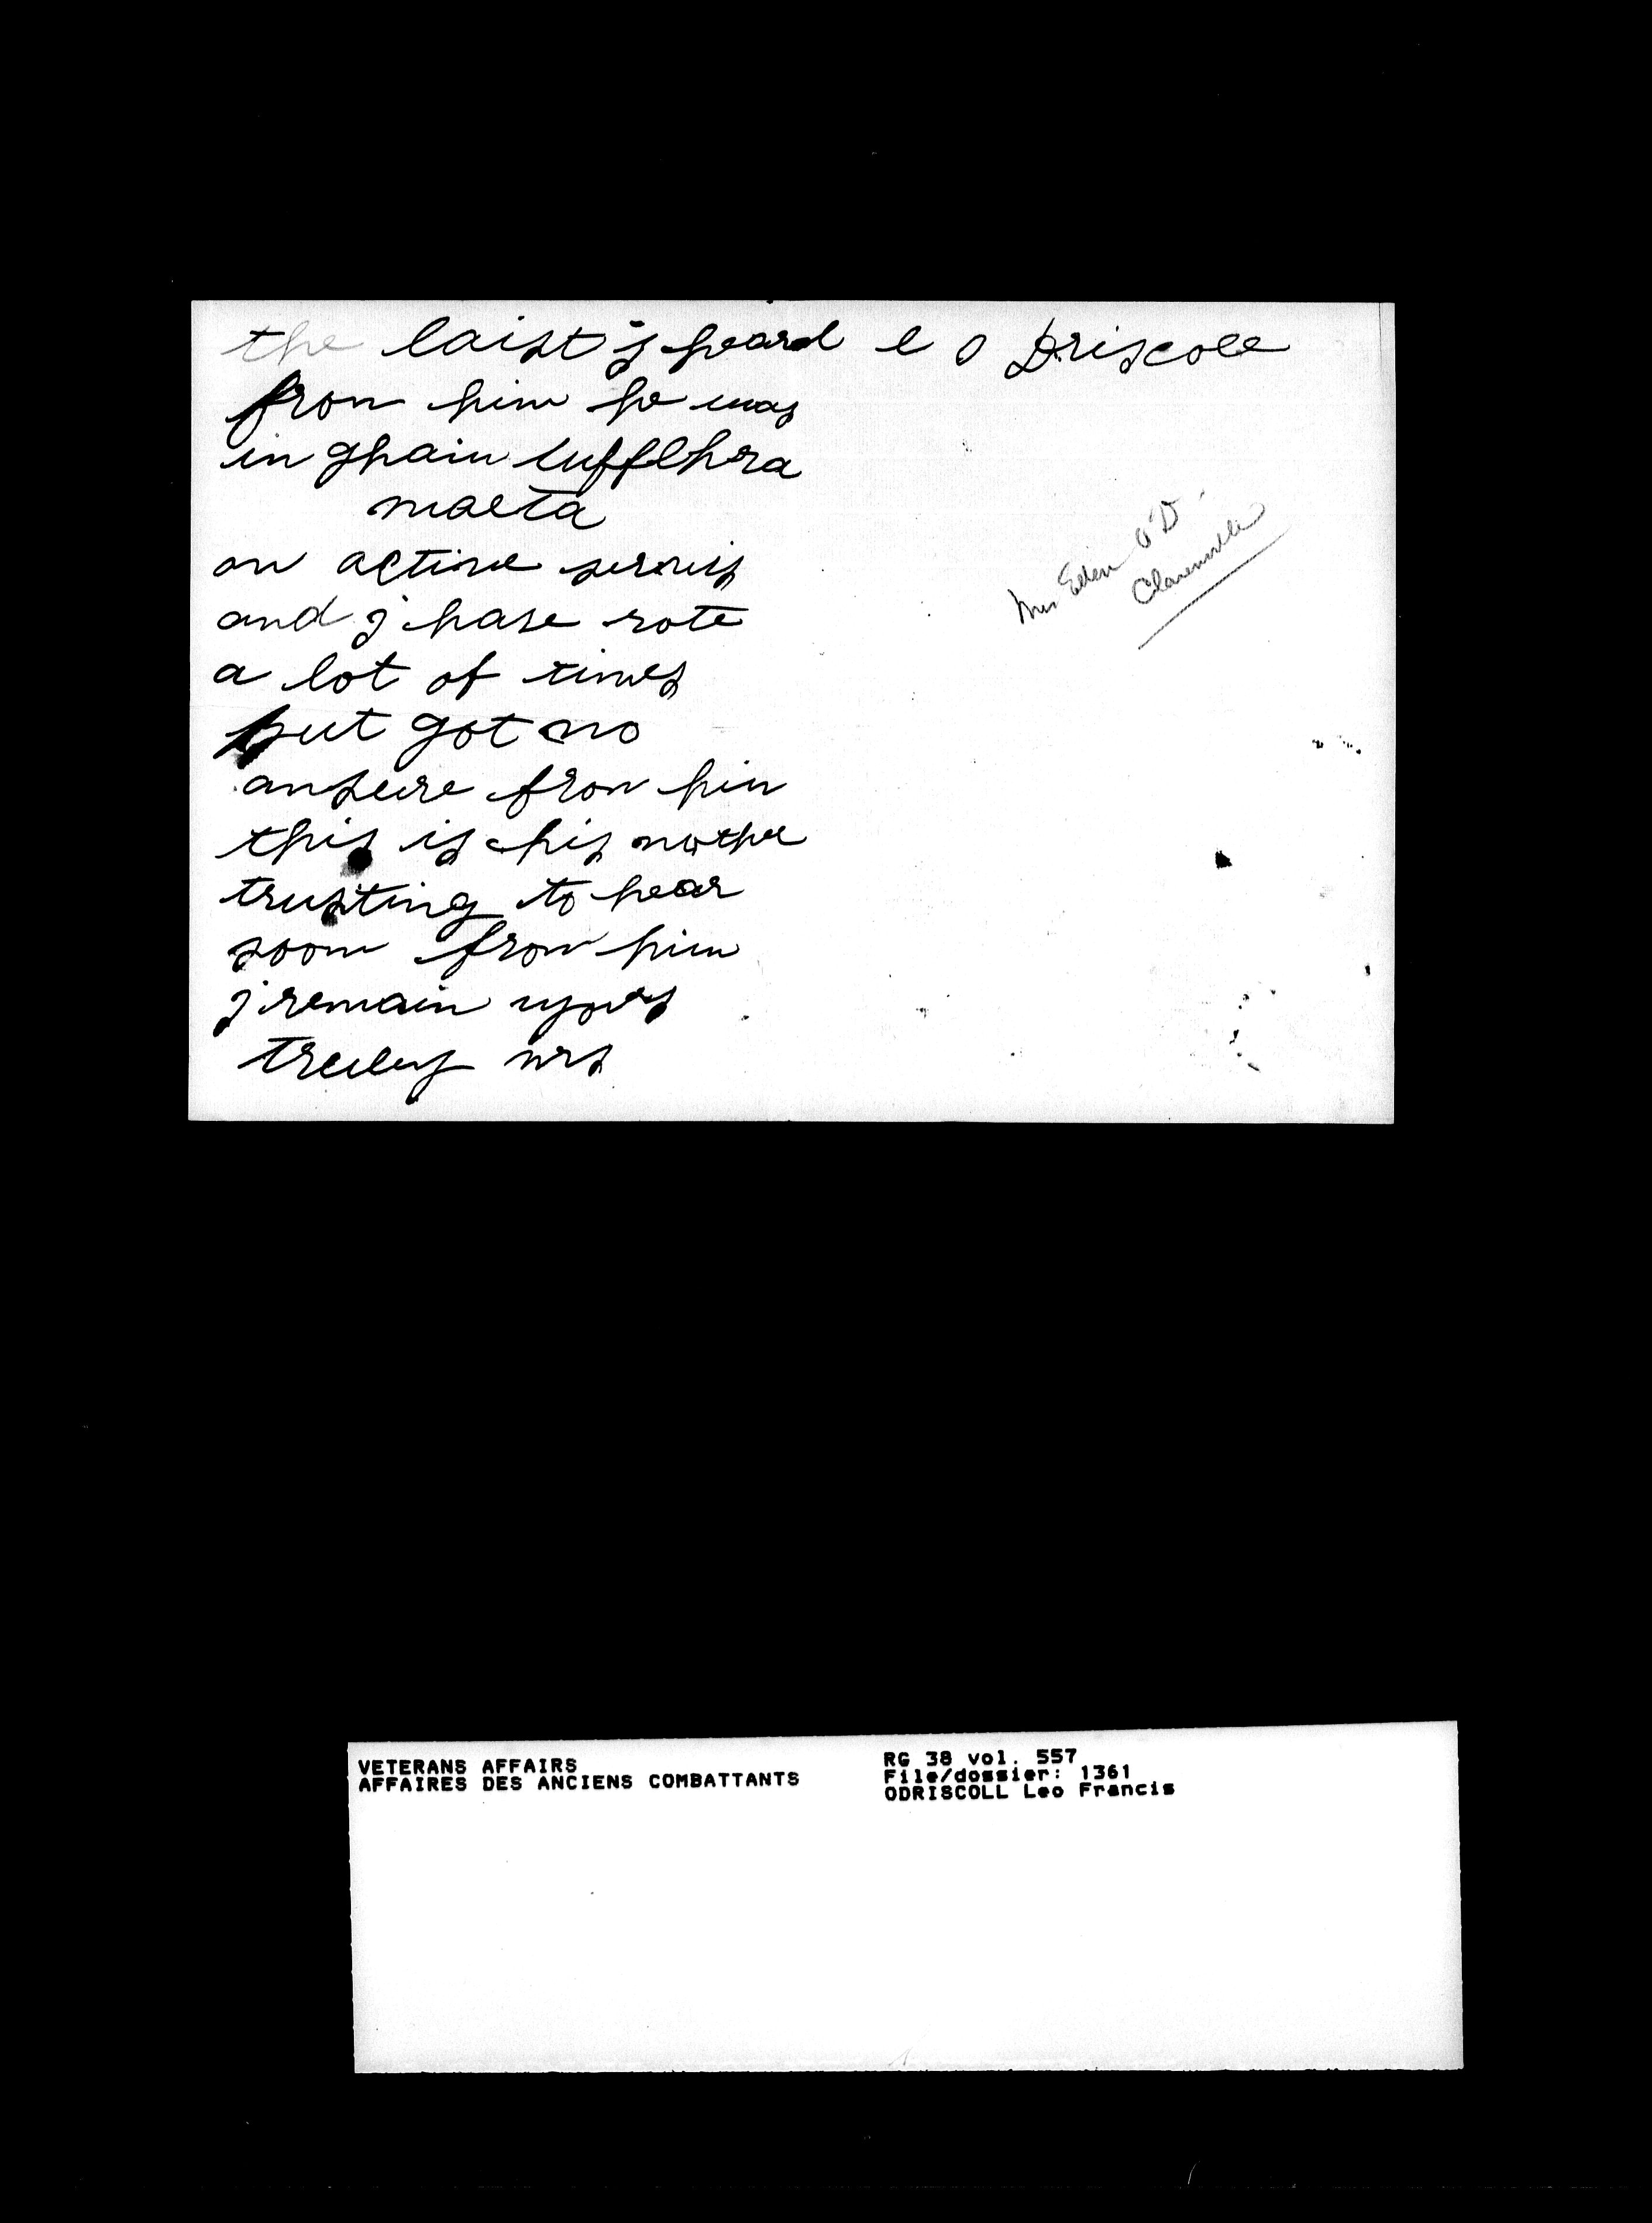 the laist j heard
from him he was
in ghain tufflhra
maeta
on active servis
and j have rote
a lot of times
but got no
anseure from him
this is his mother
trusting to hear
soon from him
j remain yours
truley mrs
e o Driscole
Mrs Ellen O'D
Clarenville
VETERANS AFFAIRS
AFFAIRES DES ANCIENS COMBATTANTS
RG 38 vol. 557
File/dossier: 1361
ODRISCOLL Leo Francis